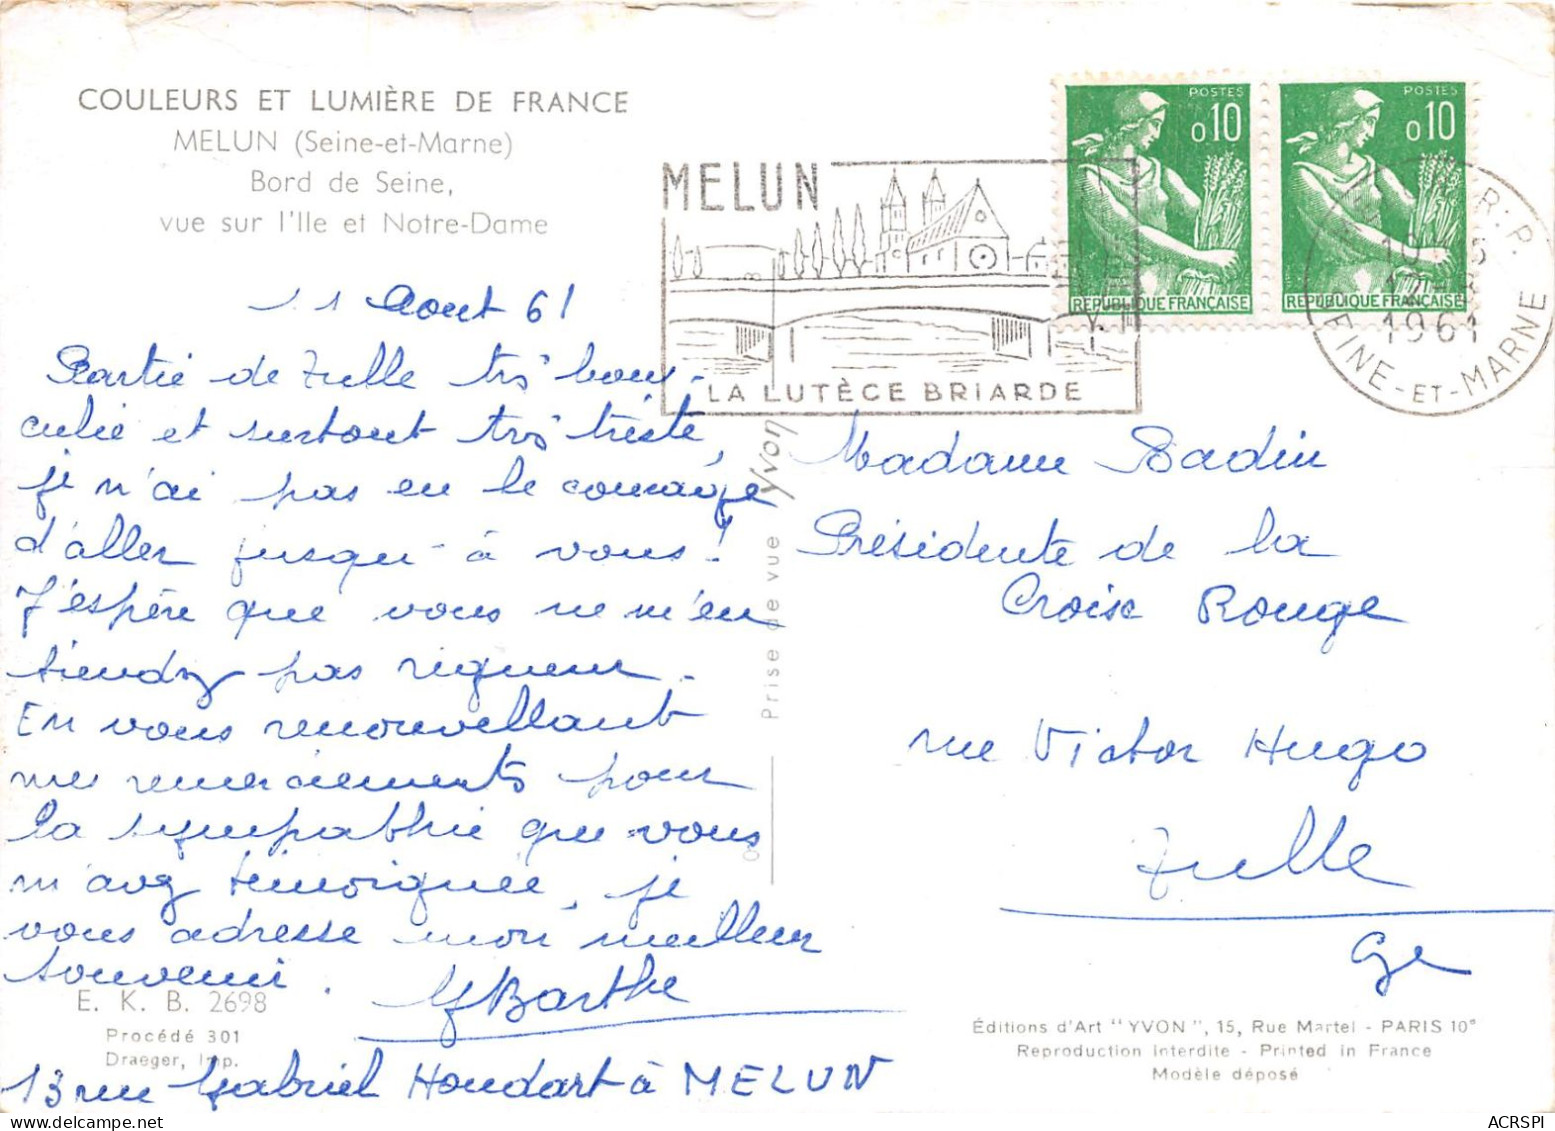 COULEURS ET LUMIÈRE DE FRANCE
MELUN (Seine-et-Marne)
Bord de Seine,
vue sur l'Ile et Notre-Dame
11 Aout 61
Partie de Tulle très bous-
culée et surtout très triste,
je n'ai pas eu le courage
d'aller jusqu'à vous!
J'espère que vous ne m'en
tiendrez pas rigueur.
En vous renouvellant
mes remerciements pour
la sympathie que vous
m'avez témoignée, je
vous adresse mon meilleur
souvenir.
YBarthe
13 rue Gabriel Houdart à MELUN
E. K. B. 2698
Procédé 301
Draeger, Imp.
Prise de vue Yvon
MELUN
LA LUTÈCE BRIARDE
POSTES
0,10
REPUBLIQUE FRANÇAISE
POSTES
0,10
REPUBLIQUE FRANÇAISE
R.P.
1961
SEINE-ET-MARNE
Madame Badin
Présidente de la
Croix Rouge
rue Victor Hugo
Tulle
Éditions d'Art "YVON", 15, Rue Martel - PARIS 10e
Reproduction Interdite - Printed in France
Modèle déposé
ACRSPI